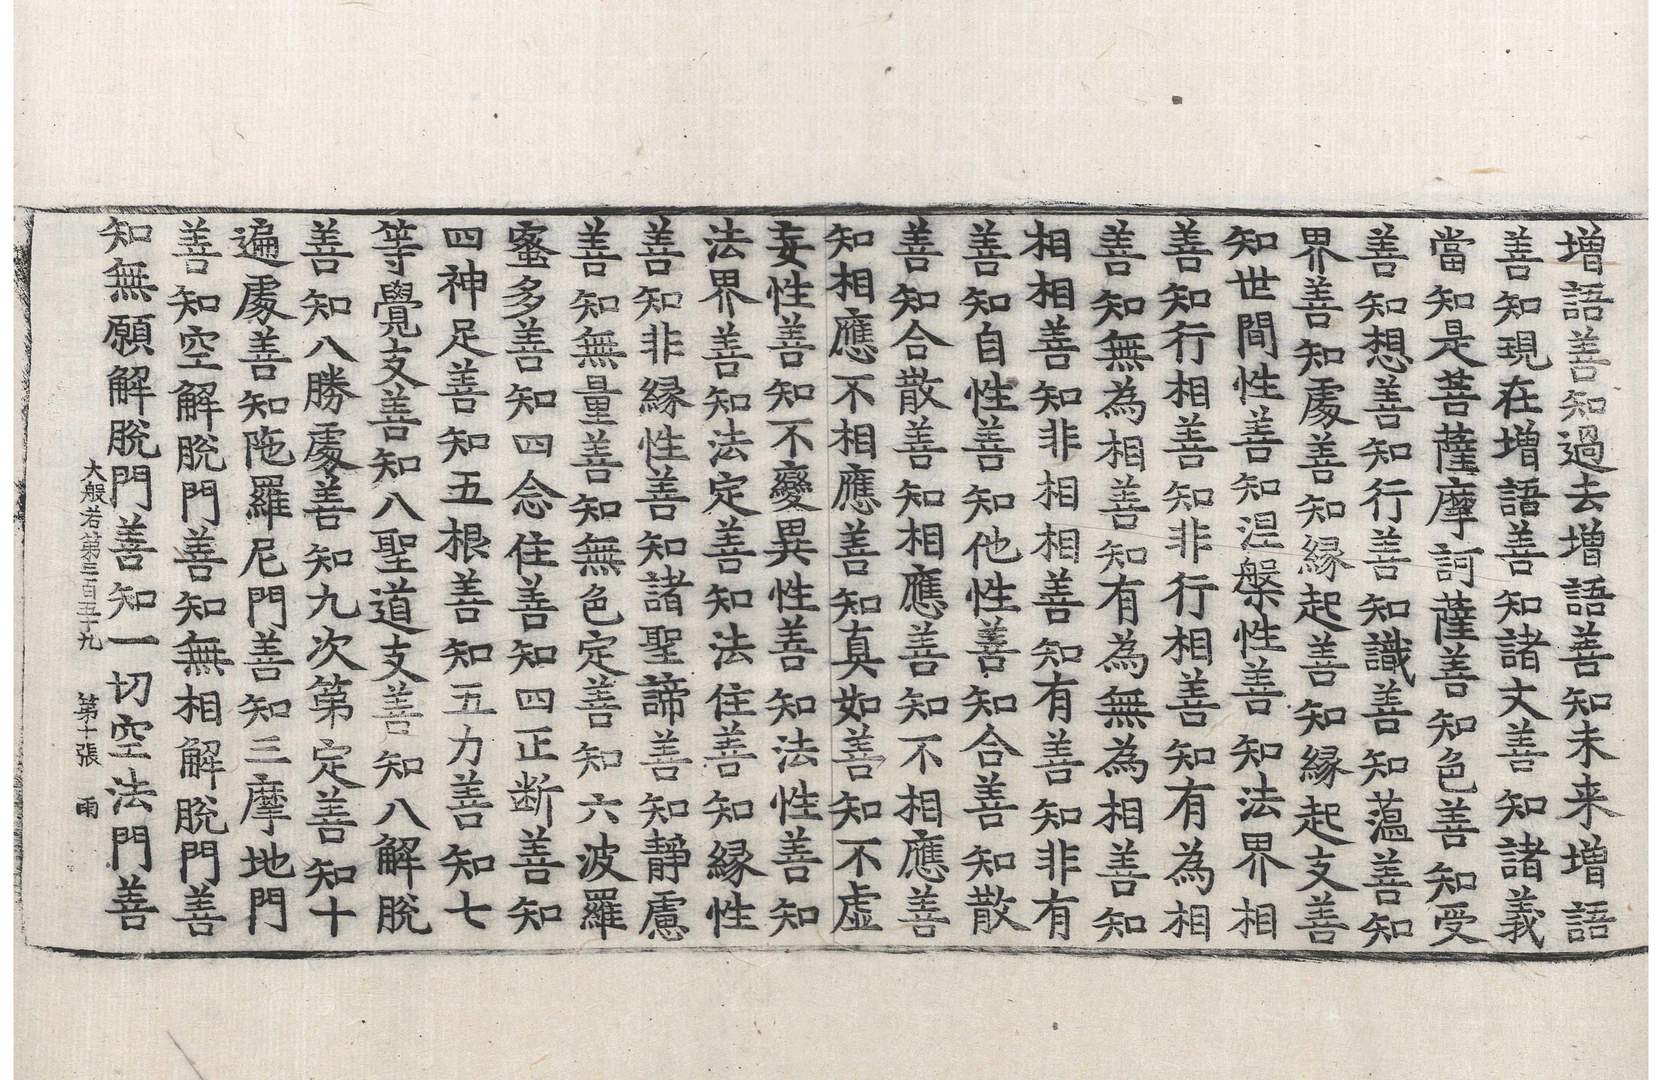 增語善知過去增語善知未来增語
善知現在增語善知諸文善知諸義
當知是菩薩摩訶薩善知色善知受
善知想善知行善知識善知蕰善知
界善知處善知縁起善知縁起支善
知世間性善知涅槃性善知法界相
善知行相善知非行相善知有為相
善知無為相善知有為無為相善知
相相善知非相相善知有善知非有
善知自性善知他性善知合善知散
善知合散善知相應善知不相應善
知相應不相應善知真如善知不虛
妄性善知不變異性善知法性善知
法界善知法定善知法住善知縁性
善知非縁性善知諸聖諦善知靜慮
善知無量善知無色定善知六波羅
蜜多善知四念住善知四正断善知
四神足善知五根善知五力善知七
等覺支善知八聖道支善知八解脫
善知八勝處善知九次第定善知十
遍處善知陁羅尼門善知三摩地門
善知空解脫門善知無相解脫門善
知無願解脫門善知一切空法門善
大般若第三百五十九 第十張 雨